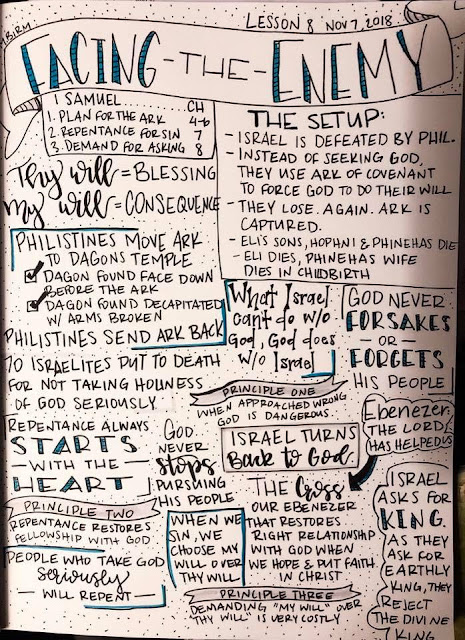 LESSON 8 NOV 7, 2018
FACING-THE-ENEMY
1 SAMUEL CH
1. PLAN FOR THE ARK 4-6
2. REPENTANCE FOR SIN 7
3. DEMAND FOR ASKING 8
THE SETUP:
- ISRAEL IS DEFEATED BY PHIL.
- INSTEAD OF SEEKING GOD,
THEY USE ARK OF COVENANT
TO FORCE GOD TO DO THEIR WILL
- THEY LOSE. AGAIN. ARK IS
CAPTURED.
- ELI'S SONS, HOPHNI & PHINEHAS DIE
- ELI DIES, PHINEHAS WIFE
DIES IN CHILDBIRTH
Thy will = BLESSING
My will = CONSEQUENCE
PHILISTINES MOVE ARK
TO DAGONS TEMPLE
DAGON FOUND FACE DOWN
BEFORE THE ARK
DAGON FOUND DECAPITATED
W/ ARMS BROKEN
PHILISTINES SEND ARK BACK
What Israel
can't do w/o
God, God does
w/o Israel
GOD NEVER
FORSAKES
- OR -
FORGETS
HIS PEOPLE
70 ISRAELITES PUT TO DEATH
FOR NOT TAKING HOLINESS
OF GOD SERIOUSLY
PRINCIPLE ONE
WHEN APPROACHED WRONG
GOD IS DANGEROUS.
REPENTANCE ALWAYS
STARTS
- WITH THE -
HEART
GOD
NEVER
stops
PURSUING
HIS PEOPLE
ISRAEL TURNS
Back to God.
Ebenezer
THE LORD
HAS HELPED US
PRINCIPLE TWO
REPENTANCE RESTORES
FELLOWSHIP WITH GOD
PEOPLE WHO TAKE GOD
seriously
- WILL REPENT -
WHEN WE
SIN, WE
CHOOSE MY
WILL OVER
THY WILL
THE Cross
OUR EBENEZER
THAT RESTORES
RIGHT RELATIONSHIP
WITH GOD WHEN
WE HOPE & PUT FAITH
IN CHRIST
PRINCIPLE THREE
DEMANDING "MY WILL" OVER
"THY WILL" IS VERY COSTLY
ISRAEL
ASKS FOR
KING.
AS THEY
ASK FOR
EARTHLY
KING, THEY
REJECT
THE DIVINE
KING